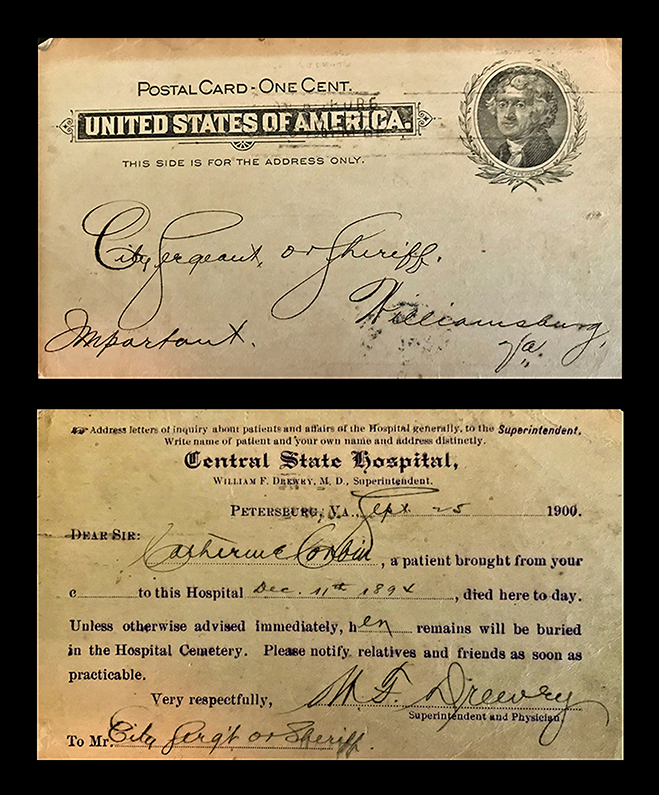 POSTAL CARD - ONE CENT.
UNITED STATES OF AMERICA.
THIS SIDE IS FOR THE ADDRESS ONLY.
City Sergeant, or Sheriff.
Williamsburg,
Important.
Va.
Address letters of inquiry about patients and affairs of the Hospital generally, to the Superintendent.
Write name of patient and your own name and address distinctly.
Central State Hospital,
WILLIAM F. DREWRY, M. D., Superintendent.
PETERSBURG, VA., Sept 25 1900.
DEAR SIR:
Catherine Corbin, a patient brought from your
c to this Hospital Dec. 11th 1894, died here to day.
Unless otherwise advised immediately, her remains will be buried
in the Hospital Cemetery. Please notify relatives and friends as soon as
practicable.
Very respectfully, W. F. Drewry
Superintendent and Physician
To Mr. City Serg't or Sheriff.